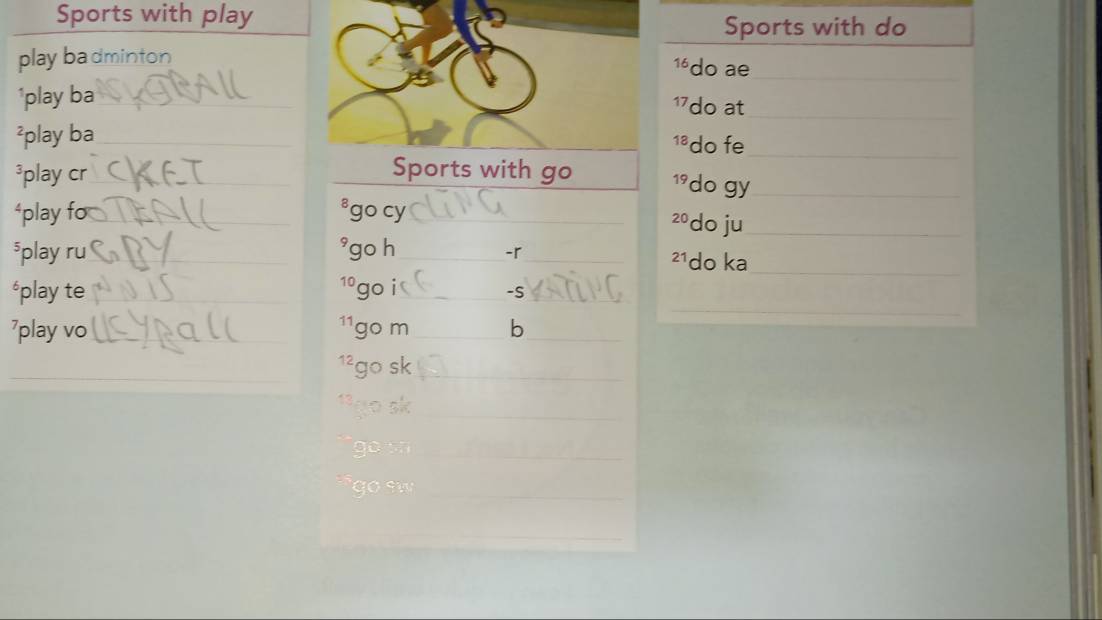 Sports with play
play badminton
¹play baSKETBAll
²play ba
³play crICKET
⁴play foOTBAll
⁵play ruGBY
⁶play teNNIS
⁷play vollEYBall
Sports with go
⁸go cyCLiNG
⁹go h -r
¹⁰go iCE -sKATiNG
¹¹go m b
¹²go sk
¹³go sk
¹⁴go sn
¹⁵go sw
Sports with do
¹⁶do ae
¹⁷do at
¹⁸do fe
¹⁹do gy
²⁰do ju
²¹do ka